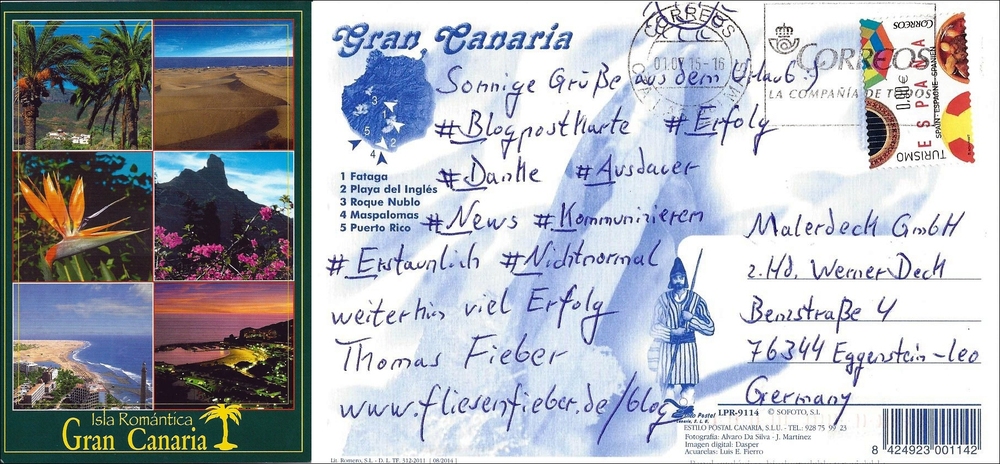 Isla Romántica
Gran Canaria
Gran Canaria
1 Fataga
2 Playa del Inglés
3 Roque Nublo
4 Maspalomas
5 Puerto Rico
Sonnige Grüße aus dem Urlaub :)
#Blogpostkarte #Erfolg
#Danke #Ausdauer
#News #Kommunizieren
#Erstaunlich #Nichtnormal
weiterhin viel Erfolg
Thomas Fieber
www.fliesenfieber.de/blog
CORREOS
01.07 15-16
CORREOS
LA COMPAÑIA DE TODOS
CORREOS
ESPAÑA
SPAIN-ESPAGNE-SPANIEN
TURISMO
Malerdeck GmbH
z.Hd. Werner Deck
Benzstraße 4
76344 Eggenstein-Leo
Germany
LPR-9114 © SOFOTO, S.L.
ESTILO POSTAL CANARIA, S.L.U. - TEL: 928 75 99 23
Fotografía: Alvaro Da Silva - J. Martinez
Imagen digital: Dasper
Acuarelas: Luis E. Fierro
Lit. Romero, S.L. - D. L. TF. 312-2011 | 08/2014 |
8 424923 001142